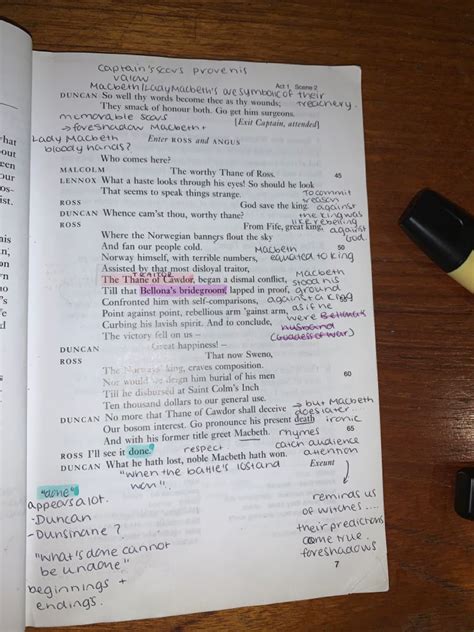 captain's scars prove his
valour
Macbeth/Lady Macbeth's are symbolic of their
treachery.
Act 1 Scene 2
DUNCAN So well thy words become thee as thy wounds;
They smack of honour both. Go get him surgeons.
[Exit Captain, attended]
memorable scars
→ foreshadow Macbeth +
Lady Macbeth
bloody hands?
Enter ROSS and ANGUS
Who comes here?
MALCOLM The worthy Thane of Ross. 45
LENNOX What a haste looks through his eyes! So should he look
That seems to speak things strange.
ROSS God save the king.
To commit
treason
against
the king was
like rebelling
against
God
DUNCAN Whence cam'st thou, worthy thane?
ROSS From Fife, great king,
Where the Norwegian banners flout the sky 50
And fan our people cold.
Norway himself, with terrible numbers,
Macbeth
equated to king
Assisted by that most disloyal traitor,
TRAITOR
The Thane of Cawdor, began a dismal conflict,
Till that Bellona's bridegroom, lapped in proof,
Confronted him with self-comparisons,
Point against point, rebellious arm 'gainst arm,
Curbing his lavish spirit. And to conclude,
The victory fell on us –
Macbeth
stood his
ground
against a king
as if he
were
husband
(Goddess of war)
DUNCAN Great happiness! –
ROSS That now Sweno,
The Norways' king, craves composition.
Nor would we deign him burial of his men 60
Till he disbursed at Saint Colm's Inch
Ten thousand dollars to our general use.
DUNCAN No more that Thane of Cawdor shall deceive
Our bosom interest. Go pronounce his present death
And with his former title greet Macbeth. 65
→ but Macbeth
does later...
ironic
rhymes
catch audience
attention
ROSS I'll see it done.
respect
DUNCAN What he hath lost, noble Macbeth hath won.
Exeunt
"when the battle's lost and
won".
reminds us
of witches...
their predictions
come true.
foreshadows
"done"
appears a lot.
-Duncan
-Dunsinane?
"what's done cannot
be undone"
beginnings +
endings.
7